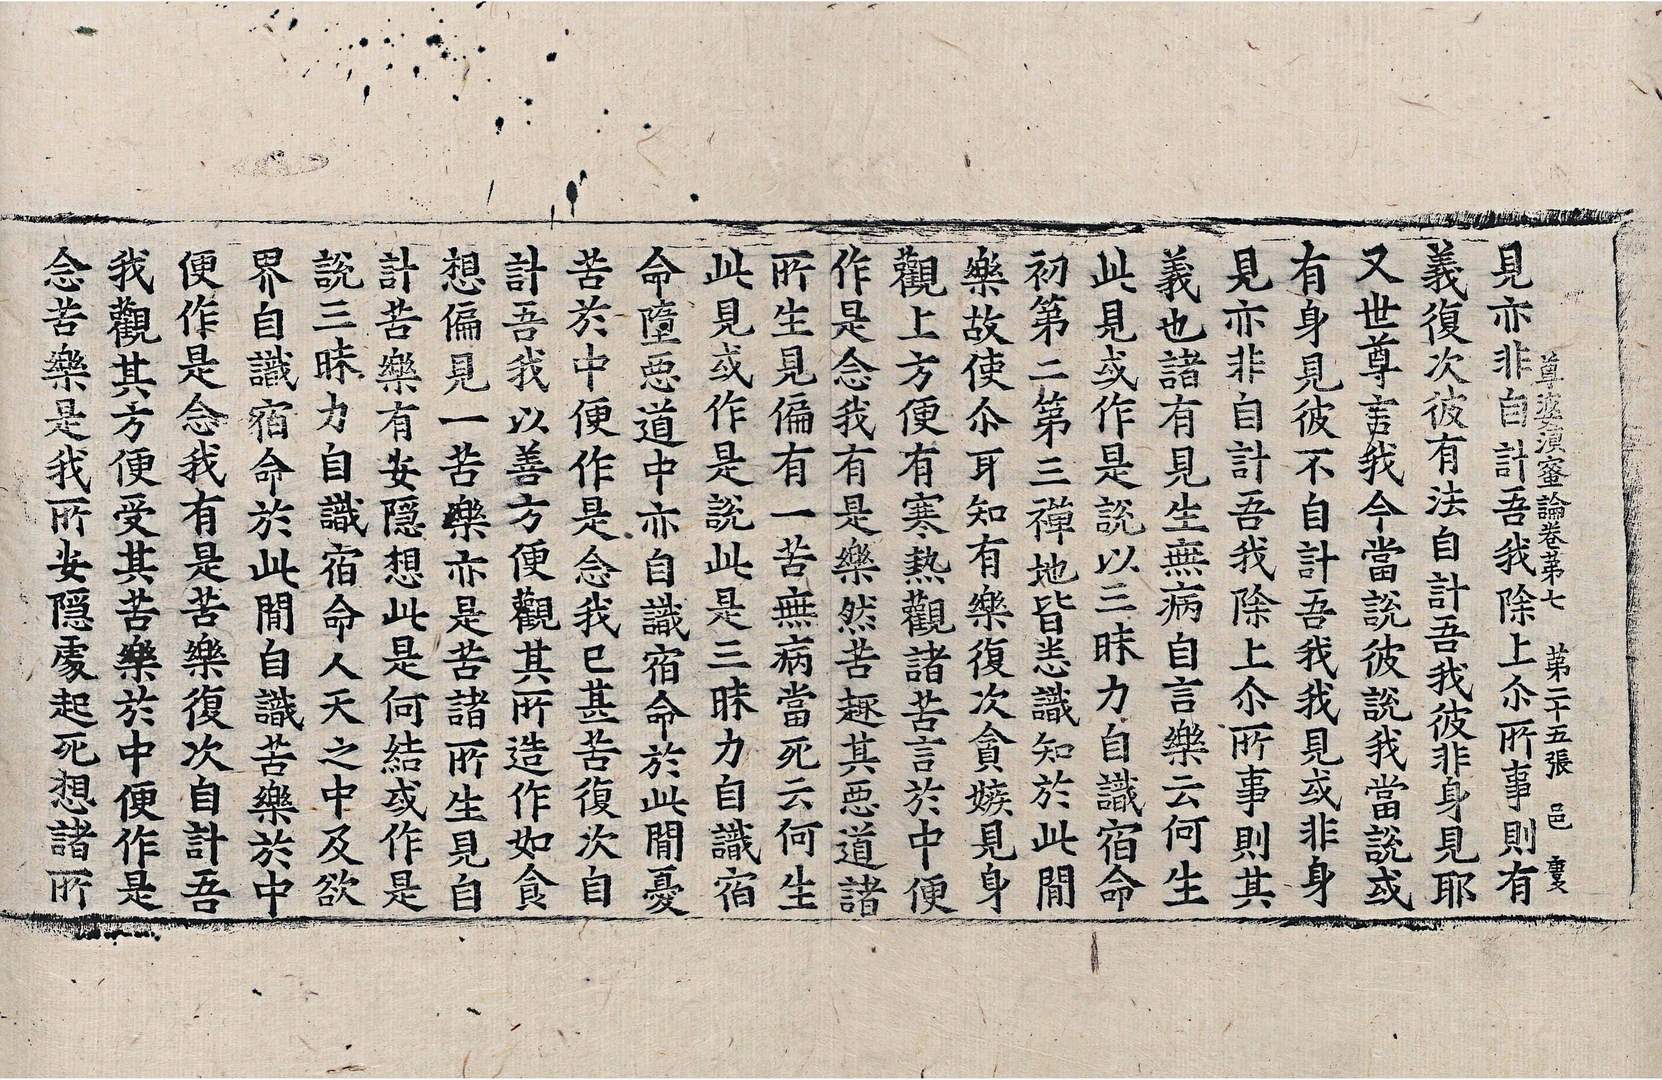 尊婆湏蜜論卷第七　第二十五張　邑
見亦非自計吾我除上尒所事則有
義復次彼有法自計吾我彼非身見耶
又世尊言我今當說彼說我當說或
有身見彼不自計吾我我見或非身
見亦非自計吾我除上尒所事則其
義也諸有見生無病自言樂云何生
此見或作是說以三昧力自識宿命
初第二第三禪地皆悉識知於此閒
樂故使尒耳知有樂復次貪嫉見身
觀上方便有寒熱觀諸苦言於中便
作是念我有是樂然苦趣其惡道諸
所生見偏有一苦無病當死云何生
此見或作是說此是三昧力自識宿
命墮惡道中亦自識宿命於此閒憂
苦於中便作是念我已甚苦復次自
計吾我以善方便觀其所造作如貪
想偏見一苦樂亦是苦諸所生見自
計苦樂有安隱想此是何結或作是
說三昧力自識宿命人天之中及欲
界自識宿命於此閒自識苦樂於中
便作是念我有是苦樂復次自計吾
我觀其方便受其苦樂於中便作是
念苦樂是我所安隱處起死想諸所